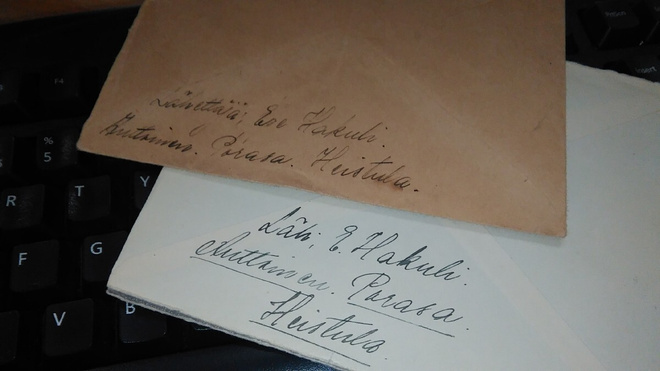 Lähettäjä; Eee Hakuli.
Auttoinen. Porasa. Heistula.
Läh; E. Hakuli.
Auttoinen. Porasa.
Heistula.
F4
%
5
R
T
Y
F
G
V
B